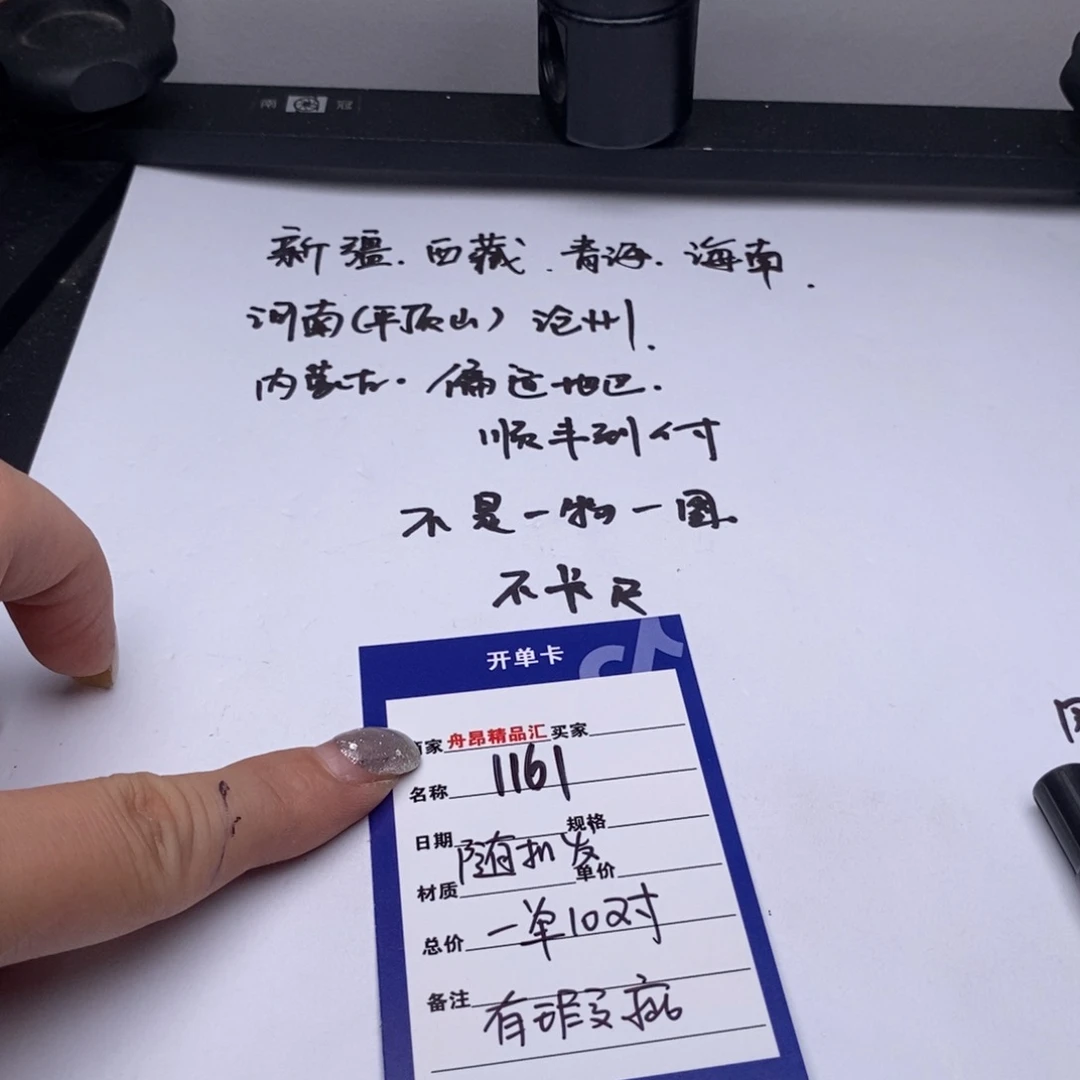 南 冠
新疆. 西藏. 青海. 海南.
河南(平顶山) 沧州.
内蒙古. 偏远地区.
顺丰到付
不是一物一图
不卡尺
开单卡
家 舟昂精品汇 买家
名称 1161
日期 规格
随机发
材质 单价
总价 一单10对
备注 有瑕疵